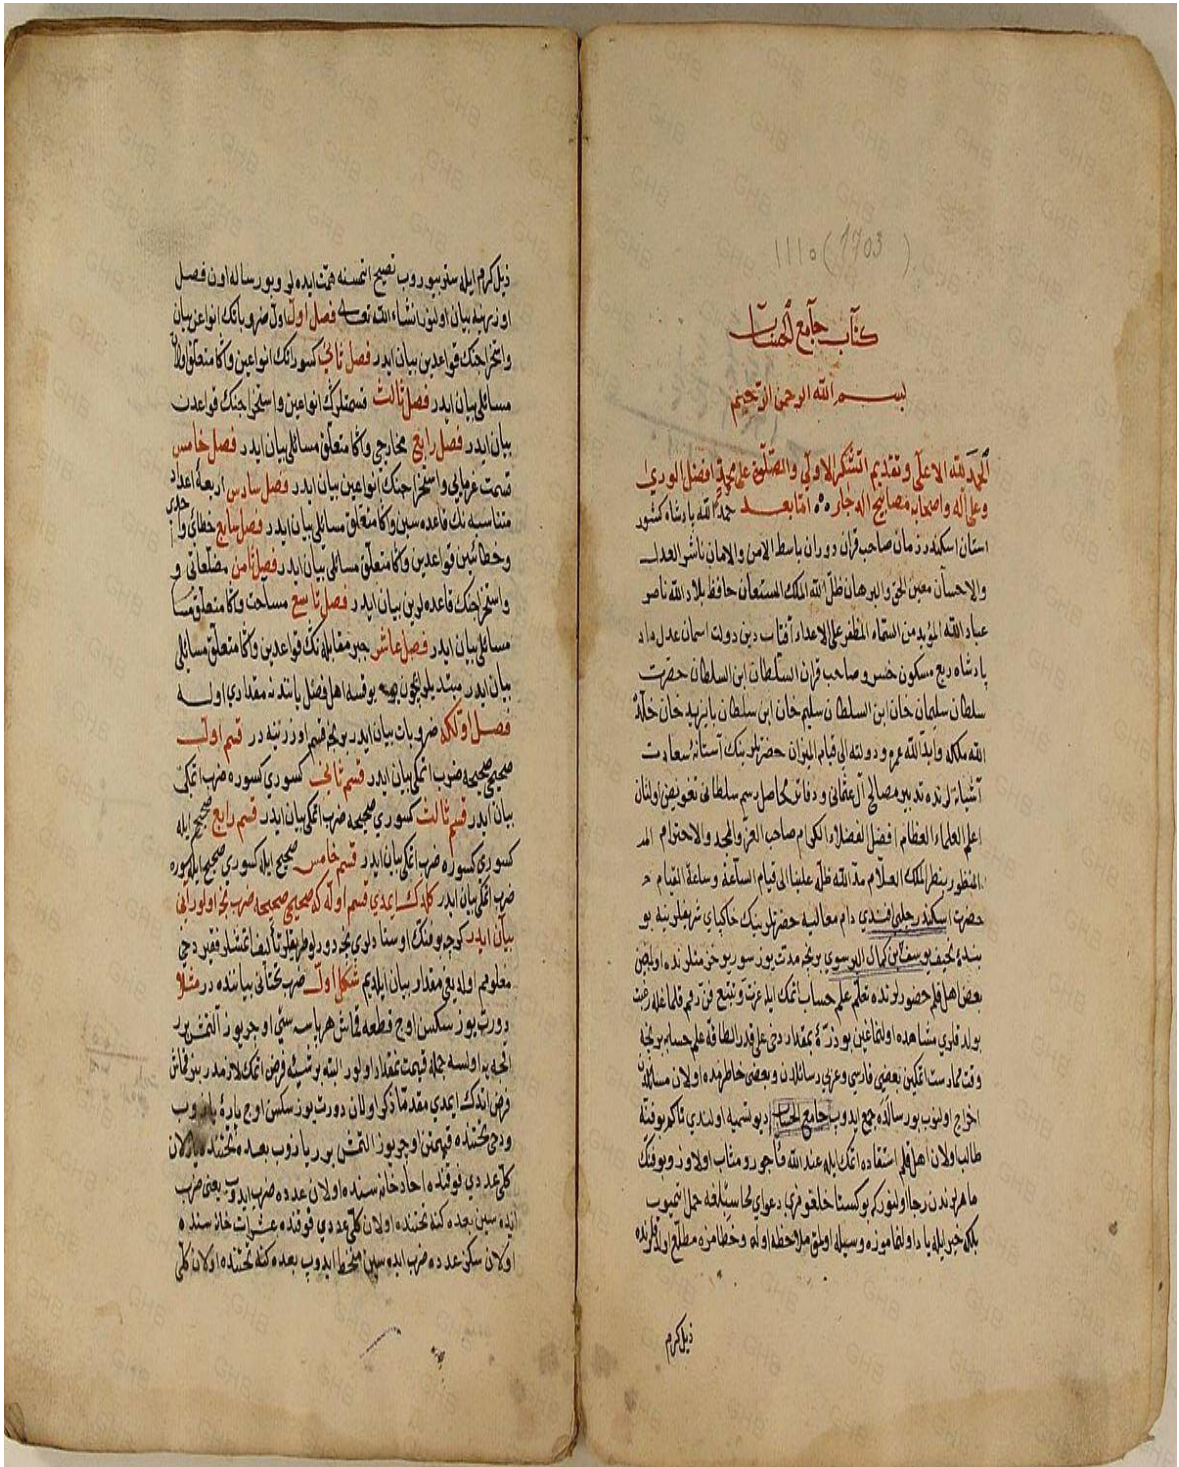 ١١١٥ (1703)
كتاب جامع الحساب
بسم الله الرحمن الرحيم
الحمد لله الاعلى وتقديم الشكر الاولى والصلوة على محمد افضل الورى
وعلى اله واصحابه مصابيح امّا بعد حمد الله پادشاه كشور
ستان اسكندر زمان صاحب قران دوران باسط الامن والامان ناشر العدل
والاحسان معين الحق والبرهان ظلّ الله الملك المستعان حافظ بلاد الله ناصر
عباد الله المؤيد من السماء المظفر على الاعداء آفتاب دين دولت اسمان عدل وداد
پادشاه ربع مسكون خسرو صاحب قران السلطان ابن السلطان حضرت
سلطان سليمان خان ابن السلطان سليم خان ابن سلطان بايزيد خان خلّد
الله ملكه وابّد الله عمره ودولته الى قيام الميزان حضرتلرينك آستانۀ سعادت
آشيانه لرنده تدبير مصالح آل عثمانى ودفاتر محاصل رسم سلطانى تفويض اولنان
اعلم العلماء العظام افضل الفضلاء الكرام صاحب العزّ والمجد والاحترام
المنظور بنظر الملك العلّام مدّ الله ظلّه علينا الى قيام الساعة وساعة القيام
حضرت اسكندر چلبى افندى دام معاليه حضرتلرينك خاكپاى شريفلرينه بو
بندۀ نحيف يوسف بن كمال البرسوى برنجه مدت يوز سوريو خدمتلرنده اولوب
بعض اهل قلم حضورلرنده تعلّم علم حساب اتمك ايله عزت وتتبع فن رقم قلما غله رغبت
بولدقلرى مشاهده اولنماغين بو ذرّۀ بمقدار دخى على قدر الطاقه علم حسابه برنجه
وقت ممارست اتمكين بعضى فارسى وعربى رسائلدن وبعضى خاطرمده اولان مسائلدن
اخراج اولنوب بو رساله ده جمع ايدوب جامع الحساب ديو تسميه اولندى تاكم بو فنّه
طالب اولان اهل قلم استفاده اتمك ايله عند الله مأجور ومثاب اولاوز وبو فنّك
ماهرلرندن رجا اولنور كم بو كستاخلغومزى دعواى محاسبلغه حمل اتميوب
بلكه خير ايله ياد اولنماموزه وسيله اولمق ملاحظه اوله وخطامزه مطّلع اولدقلرنده
ذيل كرم
ذيل كرم ايله ستر بيوروب تصحيح اتمسنه همت ايده لر وبو رساله اون فصل
اوزرينه بيان اولنور انشاء الله تعالى فصل اول اول ضروباتك انواعن بيان
واستخراجنك قواعدين بيان ايدر فصل ثانى كسوراتك انواعين واكا متعلّق اولان
مسائلى بيان ايدر فصل ثالث قسمتلرك انواعين واستخراجنك قواعدن
بيان ايدر فصل رابع مخارجى واكا متعلّق مسائلى بيان ايدر فصل خامس
قسمت غرمايى واستخراجنك انواعين بيان ايدر فصل سادس اربعۀ اعداد
متناسبه نك قاعده سين واكا متعلّق مسائلى بيان ايدر فصل سابع خطائى واحدى
وخطائين قواعدين واكا متعلّق مسائلى بيان ايدر فصل ثامن مضلّعاتى و
واستخراجنك قاعده لرين بيان ايدر فصل تاسع مساحت واكا متعلّق مسا
مسائلى بيان ايدر فصل عاشر جبر مقابله نك قواعدين واكا متعلّق مسائلى
بيان ايدر مبتديلر ايچون يوقسه اهل فضل ياننده نه مقدارى اوله
فصل اوّلكه ضروبات بيان ايدر بو بش قسم اوزرينه در قسم اول
صحيحى صحيحه ضرب اتمكى بيان ايدر قسم ثانى كسورى كسوره ضرب اتمكى
بيان ايدر قسم ثالث كسورى صحيحه ضرب اتمكى بيان ايدر قسم رابع صحيح ايله
كسورى كسوره ضرب اتمكى بيان ايدر قسم خامس صحيح ايله كسورى صحيح ايله كسوره
ضرب اتمكى بيان ايدر كلدك ايمدى قسم اوله كه صحيحى صحيحه ضرب نجه اولور آنى
بيان ايدر كرچه بو فنّك اوستادلرى نجه دورلو طريقلر تأليف اتمشلر فقير دخى
معلومم اولديغى مقدار بيان ايلديم شكل اول ضرب تحتانى بياننده در مثلا
دورت يوز سكسن اوچ قطعه قماش هر پاره سى اوچر يوز آلتمش بر
اقچه يه اولسه جمله قيمت نمقدار اولور البته بر شيئه فرض اتمك لازمدر بز قماش
فرض اتدك ايمدى مقدّما ذكر اولان دورت يوز سكسن اوچ پارۀ يازوب
ودخى تحتنده قيمتن اوچر يوز التمش بر يازوب بعده تحتنده اولان
كلّى عددى فوقنده احاد خانه سنده اولان عدده ضرب ايدوب يعنى ضرب
ايده سين بعده كنه تحتنده اولان كلّى عددى فوقنده عشرات خانه سنده
اولان سكز عدده ضرب ايده سين منحط ايدوب بعده كنه تحتنده اولان كلّى